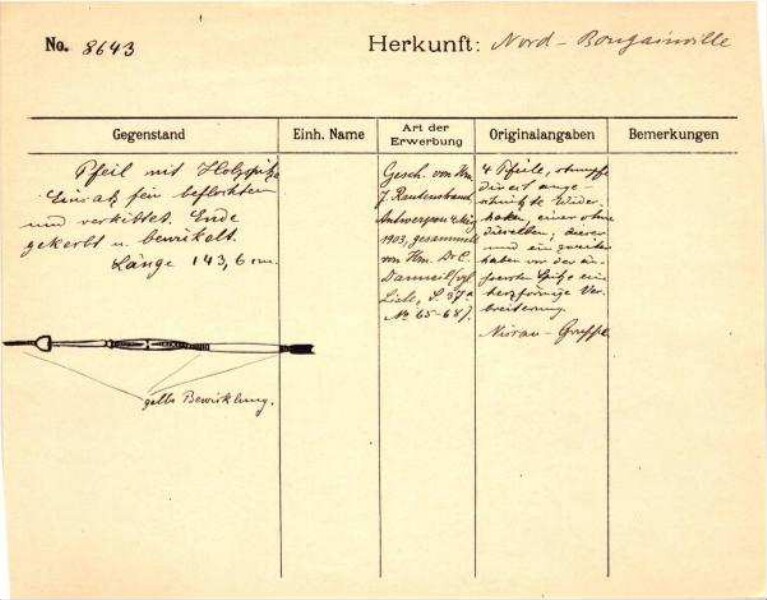 No. 8643
Herkunft: Nord-Bougainville
Gegenstand
Einh. Name
Art der Erwerbung
Originalangaben
Bemerkungen
Pfeil mit Holzspitze
Einsatz fein beflochten
und verkittet. Ende
gekerbt u. bewickelt.
Länge 143,6 cm.
gelbe Bewicklung.
Gesch. von Hrn.
J. Rautenstrauch,
Antwerpen
1903, gesammelt
von Hrn. Dr. C.
Danneil (vgl.
Liste, S. 37a
No 65-68).
4 Pfeile, stumpfe
direct ange-
schnitzte Wider-
haken, einer ohne
dieselben; dieser
und ein zweiter
haben vor der äu-
ssersten Spitze eine
herzförmige Ver-
breiterung.
Nissan-Gruppe